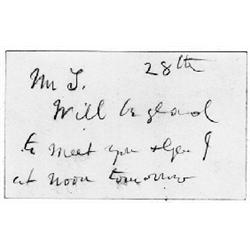 28th
Mr T.
Will be glad
to meet you & Gen J
at noon tomorrow